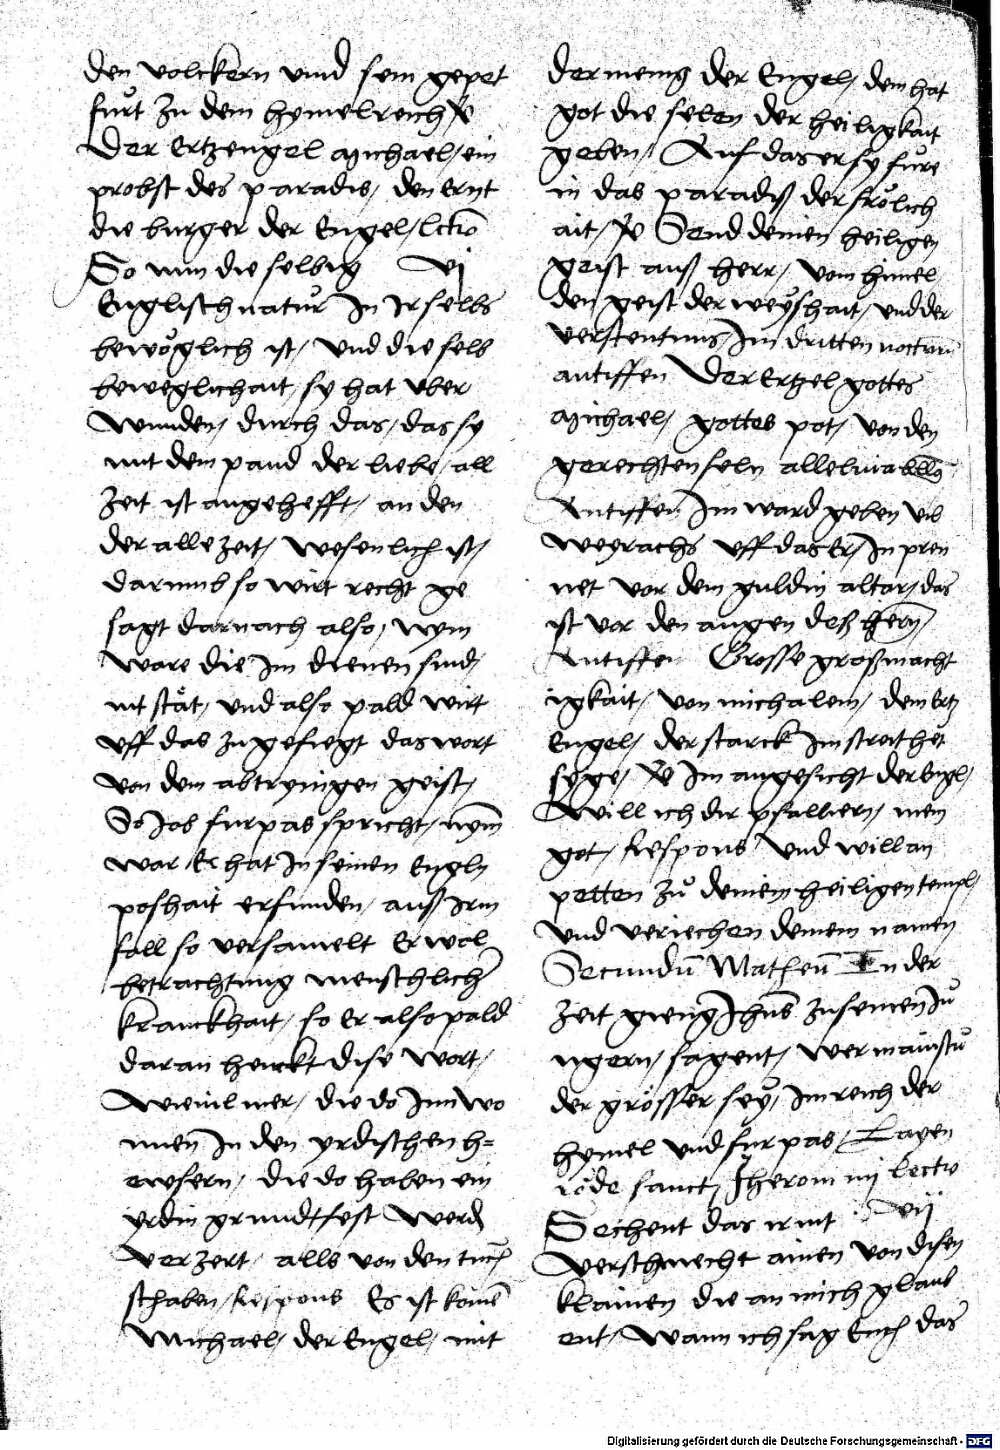 den volckern vnd sein gepet
furt zu dem hymelreich
Der Ertzengel Michael / ein
probst des paradis / den ernt
die burger der Engel / lectio
So nun die selbig vj
Englisch natur In Ir selbs
bewoglich ist / vnd die selb
beweglichait / sy hat vber
wunden / durch das / das sy
mit dem pand der liebe / all
zeit ist angehefft / an den
der alle zeit / wesenlich ist /
darumb so wirt recht ge
sagt darnach also / nym
ware die Im dienen sind /
nit stät / vnd also pald wirt
vff das zugefiegt das wort
von dem abtrynigen geist /
So Job furpas spricht / nym
war Er hat In seinen Engeln
poshait erfunden / auß Irm
fall so versamelt Er wol
betrachtung menschlicher
kranckhait / so Er also pald
daran henckt dise wort /
wieuil mer / die do Inn wo
nnen In den yrdischen h=
ewsern / die do haben ein
yrdin grundtfest werd
verzert / alls von den
schaben / Respons Es ist komen
Michael / der Engel / mit
der menig der Engel / dem hat
got die selen der heiligkait
geben / Auf das er sy fure
in das paradiß der frölich
ait / Send deinen heiligen
geist auß herr / vom himel
den geist der weyshait / vnd der
verstentnus / Im dritten nocturn
antiffen Der Ertzel gottes
Michael / gottes pot / von den
gerechten seln alleluia
Antiffen Im ward geben vil
weyrachs vff das Er / In pren
net vor dem guldin altar / das
ist vor den augen deß hern
Antiffen Grosse großmacht
igkait / von michalem / dem Ertz
Engel / der starck Im streit het
syge / Im angesicht der Engl /
Will ich dir psallieren / mein
got / Respons Vnd will an
petten zu deinem heiligen templ /
vnd veriechen deinem namen
Secundum Matheum In der
zeit gieng Jhus zu seinen Ju
ngern / sagent / wer mainstu
der grösser sey / Im reich der
hymel vnd furpas / Layen
rede sanct Jheronimi lectio
Sechent das ir nit vij
verschmecht ainen von disen
klainen die an mich glaub
ent / Wann ich sag Euch das
Digitalisierung gefördert durch die Deutsche Forschungsgemeinschaft - DFG